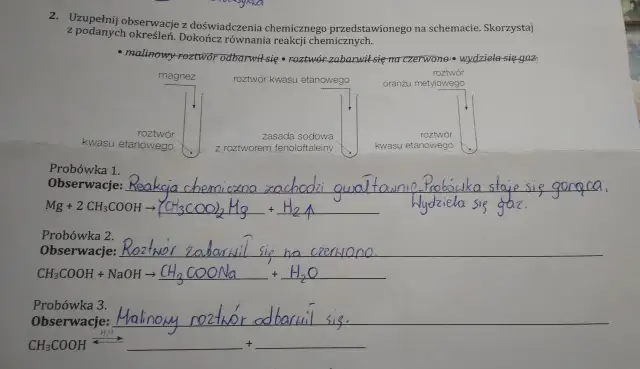 2. Uzupełnij obserwacje z doświadczenia chemicznego przedstawionego na schemacie. Skorzystaj
z podanych określeń. Dokończ równania reakcji chemicznych.
• malinowy roztwór odbarwił się • roztwór zabarwił się na czerwono • wydziela się gaz
magnez
roztwór kwasu etanowego
roztwór
oranżu metylowego
roztwór
kwasu etanowego
zasada sodowa
z roztworem fenoloftaleiny
roztwór
kwasu etanowego
Probówka 1.
Obserwacje: Reakcja chemiczna zachodzi gwałtownie. Probówka staje się gorąca.
Wydziela się gaz.
Mg + 2 CH₃COOH → (CH₃COO)₂Mg + H₂↑
Probówka 2.
Obserwacje: Roztwór zabarwił się na czerwono.
CH₃COOH + NaOH → CH₃COONa + H₂O
Probówka 3.
Obserwacje: Malinowy roztwór odbarwił się.
H₂O
CH₃COOH ⇄ ____ + ____